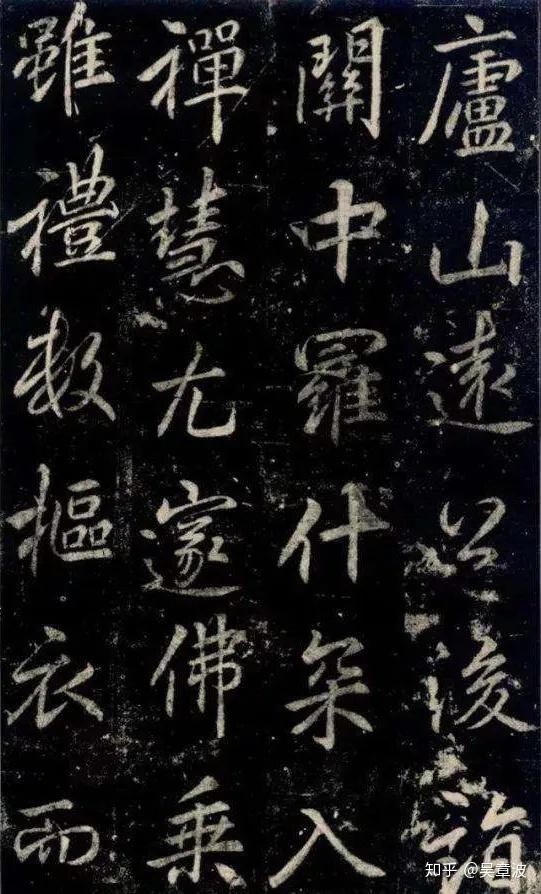 廬山遠公後詣
關中羅什罙入
禪慧尤邃佛乘
雖禮數摳衣而
知乎 @吴章波